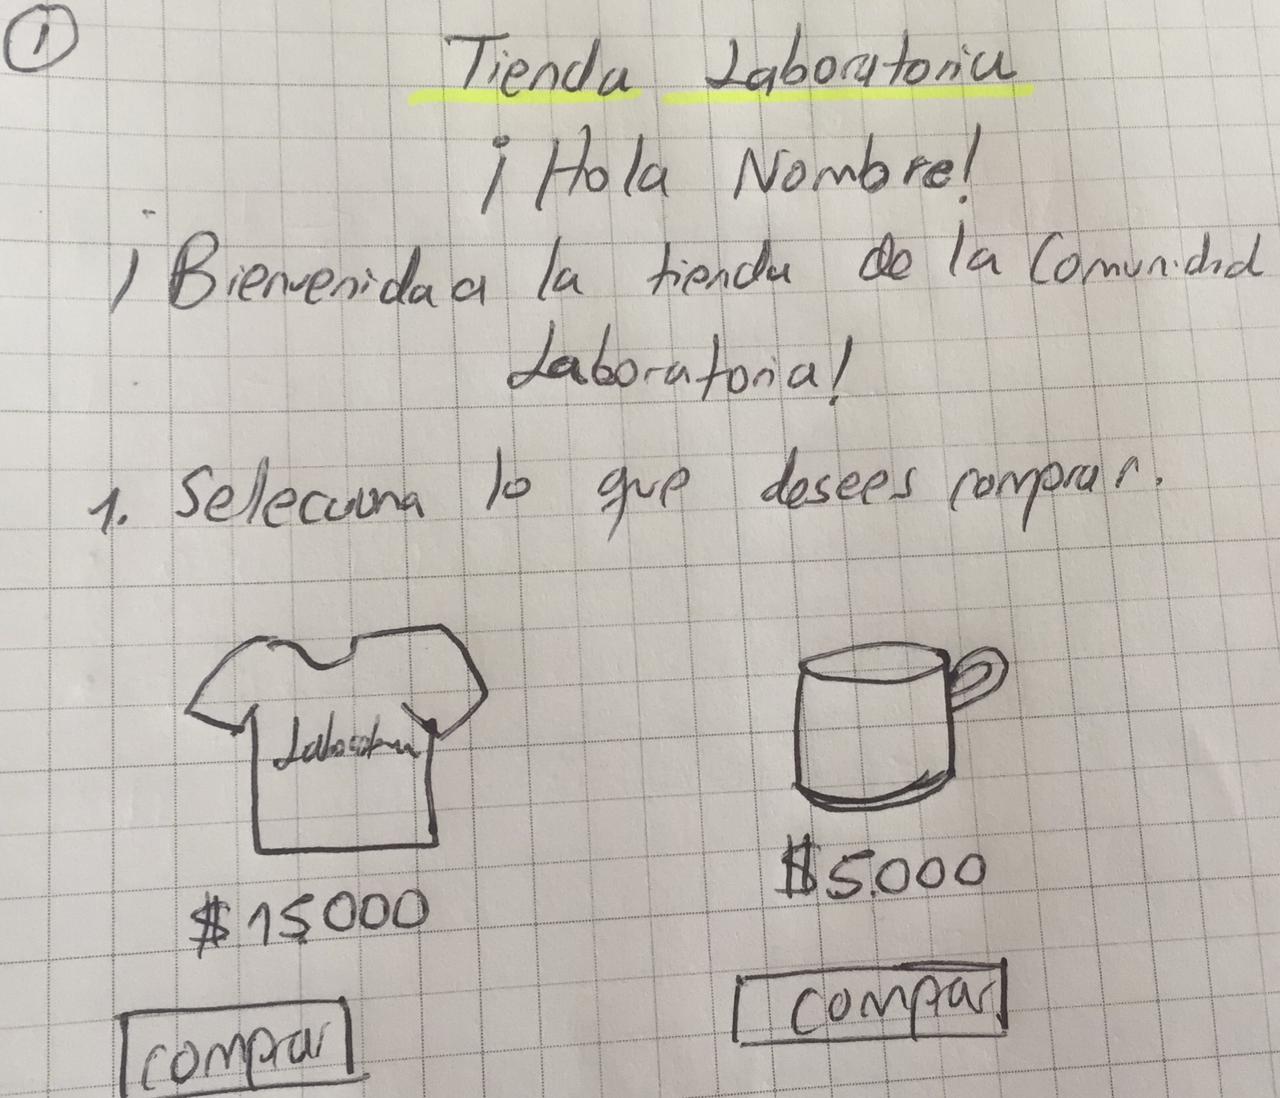 1
Tienda Laboratoria
¡Hola Nombre!
¡Bienvenida a la tienda de la Comunidad
Laboratoria!
1. Selecciona lo que desees comprar.
Laboratoria
$15000
$5.000
comprar
comprar